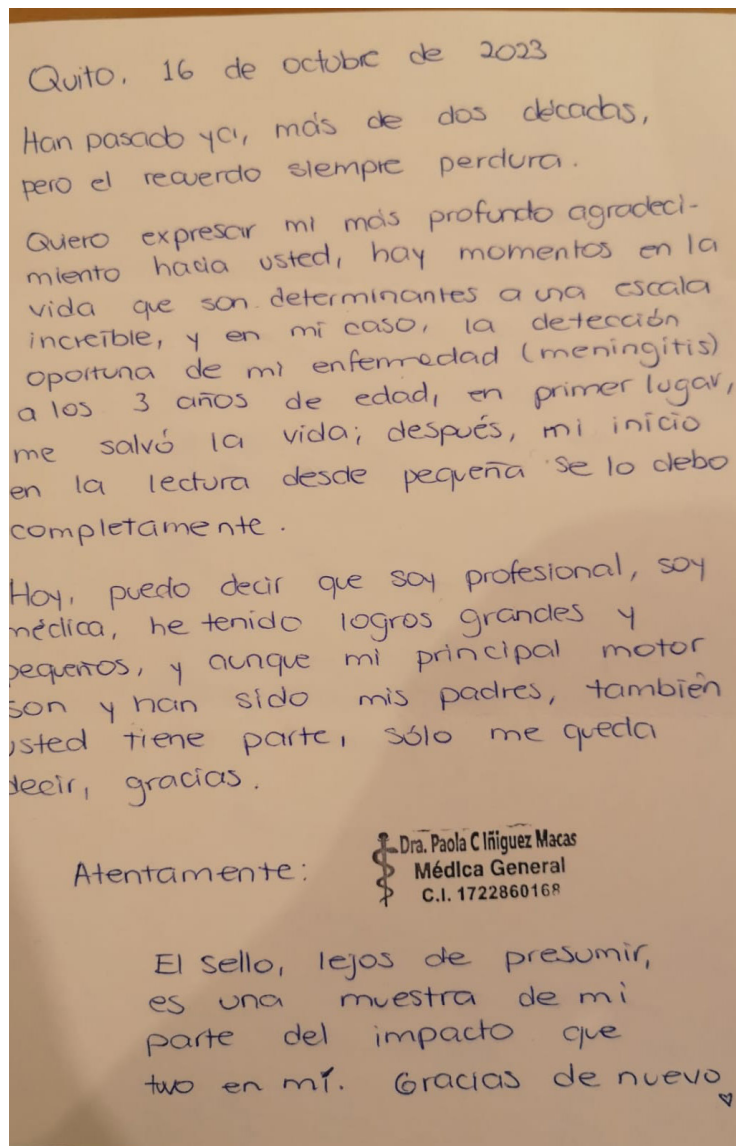 Quito, 16 de octubre de 2023
Han pasado ya, más de dos décadas,
pero el recuerdo siempre perdura.
Quiero expresar mi más profundo agradeci-
miento hacia usted, hay momentos en la
vida que son determinantes a una escala
increíble, y en mi caso, la detección
oportuna de mi enfermedad (meningitis)
a los 3 años de edad, en primer lugar,
me salvó la vida; después, mi inicio
en la lectura desde pequeña se lo debo
completamente.
Hoy, puedo decir que soy profesional, soy
médica, he tenido logros grandes y
pequeños, y aunque mi principal motor
son y han sido mis padres, también
usted tiene parte, sólo me queda
decir, gracias.
Atentamente:
Dra. Paola C Iñiguez Macas
Médica General
C.I. 1722860168
El sello, lejos de presumir,
es una muestra de mi
parte del impacto que
tuvo en mí. Gracias de nuevo